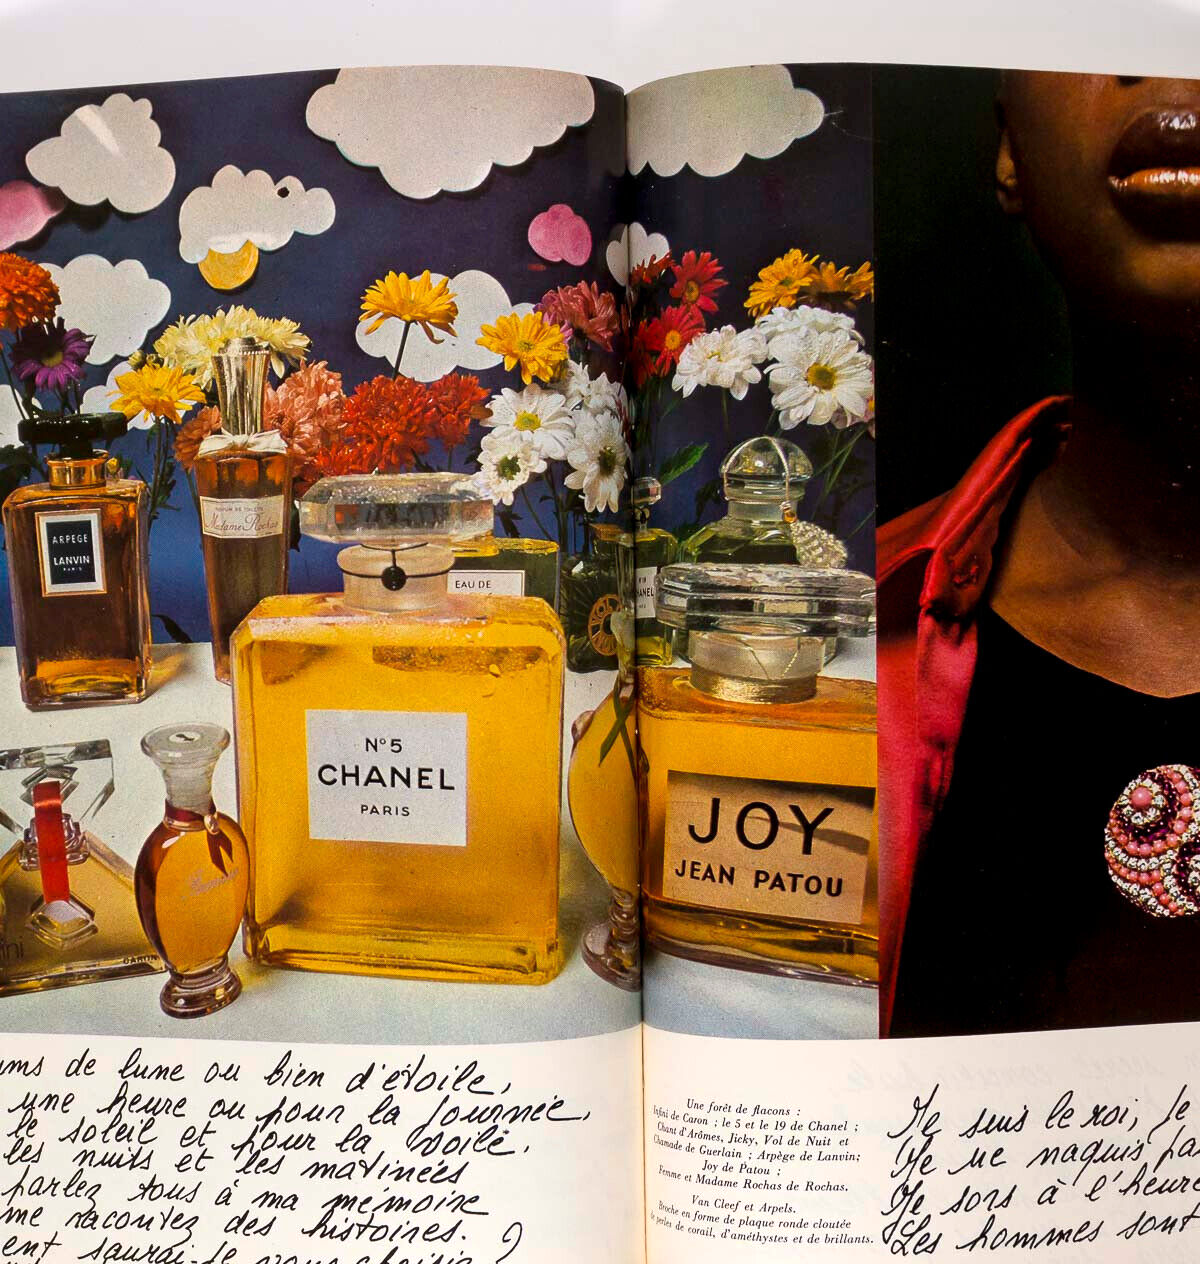 ARPEGE
LANVIN
PARIS
PARFUM DE TOILETTE
Madame Rochas
EAU DE
N° 19
CHANEL
N°5
CHANEL
PARIS
JOY
JEAN PATOU
CARON
de lune ou bien d'étoile,
une heure ou pour la journée,
le soleil et pour la voile.
les nuits et les matinées
parlez tous à ma mémoire
me racontez des histoires.
saurai-je vous choisir ?
Une forêt de flacons :
Infini de Caron ; le 5 et le 19 de Chanel ;
Chant d'Arômes, Jicky, Vol de Nuit et
Chamade de Guerlain ; Arpège de Lanvin;
Joy de Patou ;
Femme et Madame Rochas de Rochas.
Van Cleef et Arpels.
Broche en forme de plaque ronde cloutée
de perles de corail, d'améthystes et de brillants.
Je suis le roi, je
Je ne naquis
Je sors à l'heure
Les hommes sont